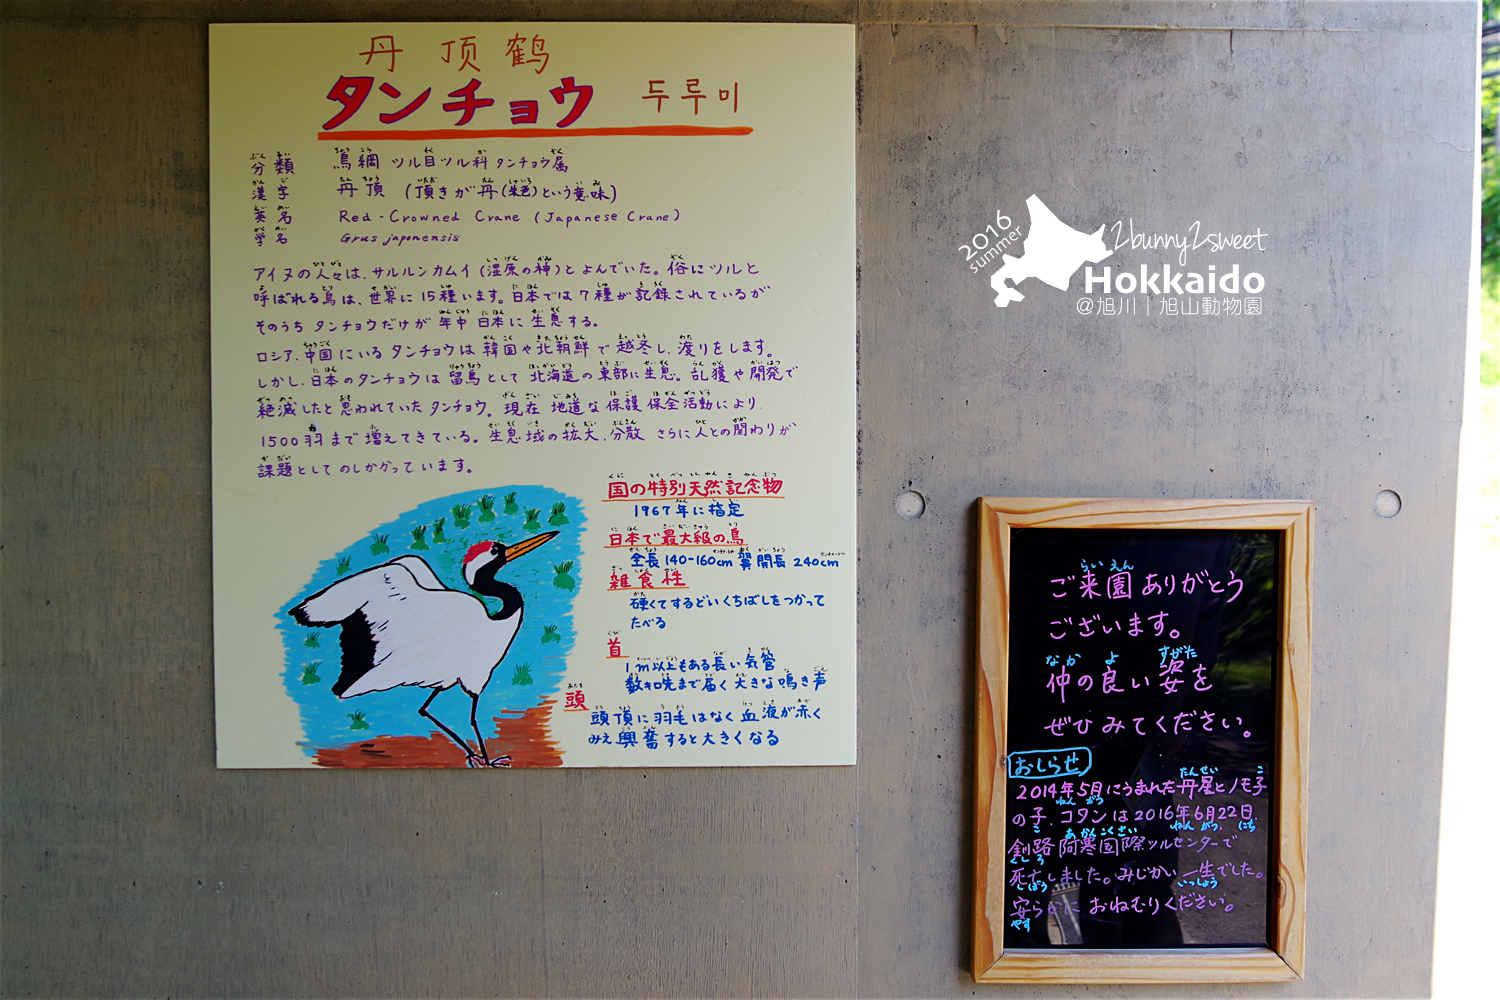 丹 顶 鹤
タンチョウ 두루미
分類 鳥綱 ツル目ツル科 タンチョウ属
漢字 丹頂 (頂きが丹(朱色)という意味)
英名 Red-Crowned Crane (Japanese Crane)
学名 Grus japonensis
アイヌの人々は、サルルンカムイ(湿原の神)とよんでいた。俗にツルと
呼ばれる鳥は、世界に15種います。日本では7種が記録されているが
そのうち タンチョウだけが年中日本に生息する。
ロシア、中国にいるタンチョウは韓国や北朝鮮で越冬し、渡りをします。
しかし、日本のタンチョウは留鳥として北海道の東部に生息。乱獲や開発で
絶滅したと思われていたタンチョウ。現在 地道な保護保全活動により、
1500羽まで増えてきている。生息域の拡大、分散 さらに人との関わりが
課題としてのしかかっています。
国の特別天然記念物
1967年に指定
日本で最大級の鳥
全長140-160cm 翼開長240cm
雑食性
硬くてするどいくちばしをつかって
たべる
首
1m以上もある長い気管
数キロ先まで届く大きな鳴き声
頭
頭頂に羽毛はなく血液が赤く
みえ興奮すると大きくなる
2016
summer
2bunny2sweet
Hokkaido
@旭川|旭山動物園
ご来園ありがとう
ございます。
仲の良い姿を
ぜひみてください。
おしらせ
2014年5月にうまれた丹星とノモ子
の子、コタンは2016年6月22日、
釧路 阿寒国際ツルセンターで
死亡しました。みじかい一生でした。
安らかに おねむりください。